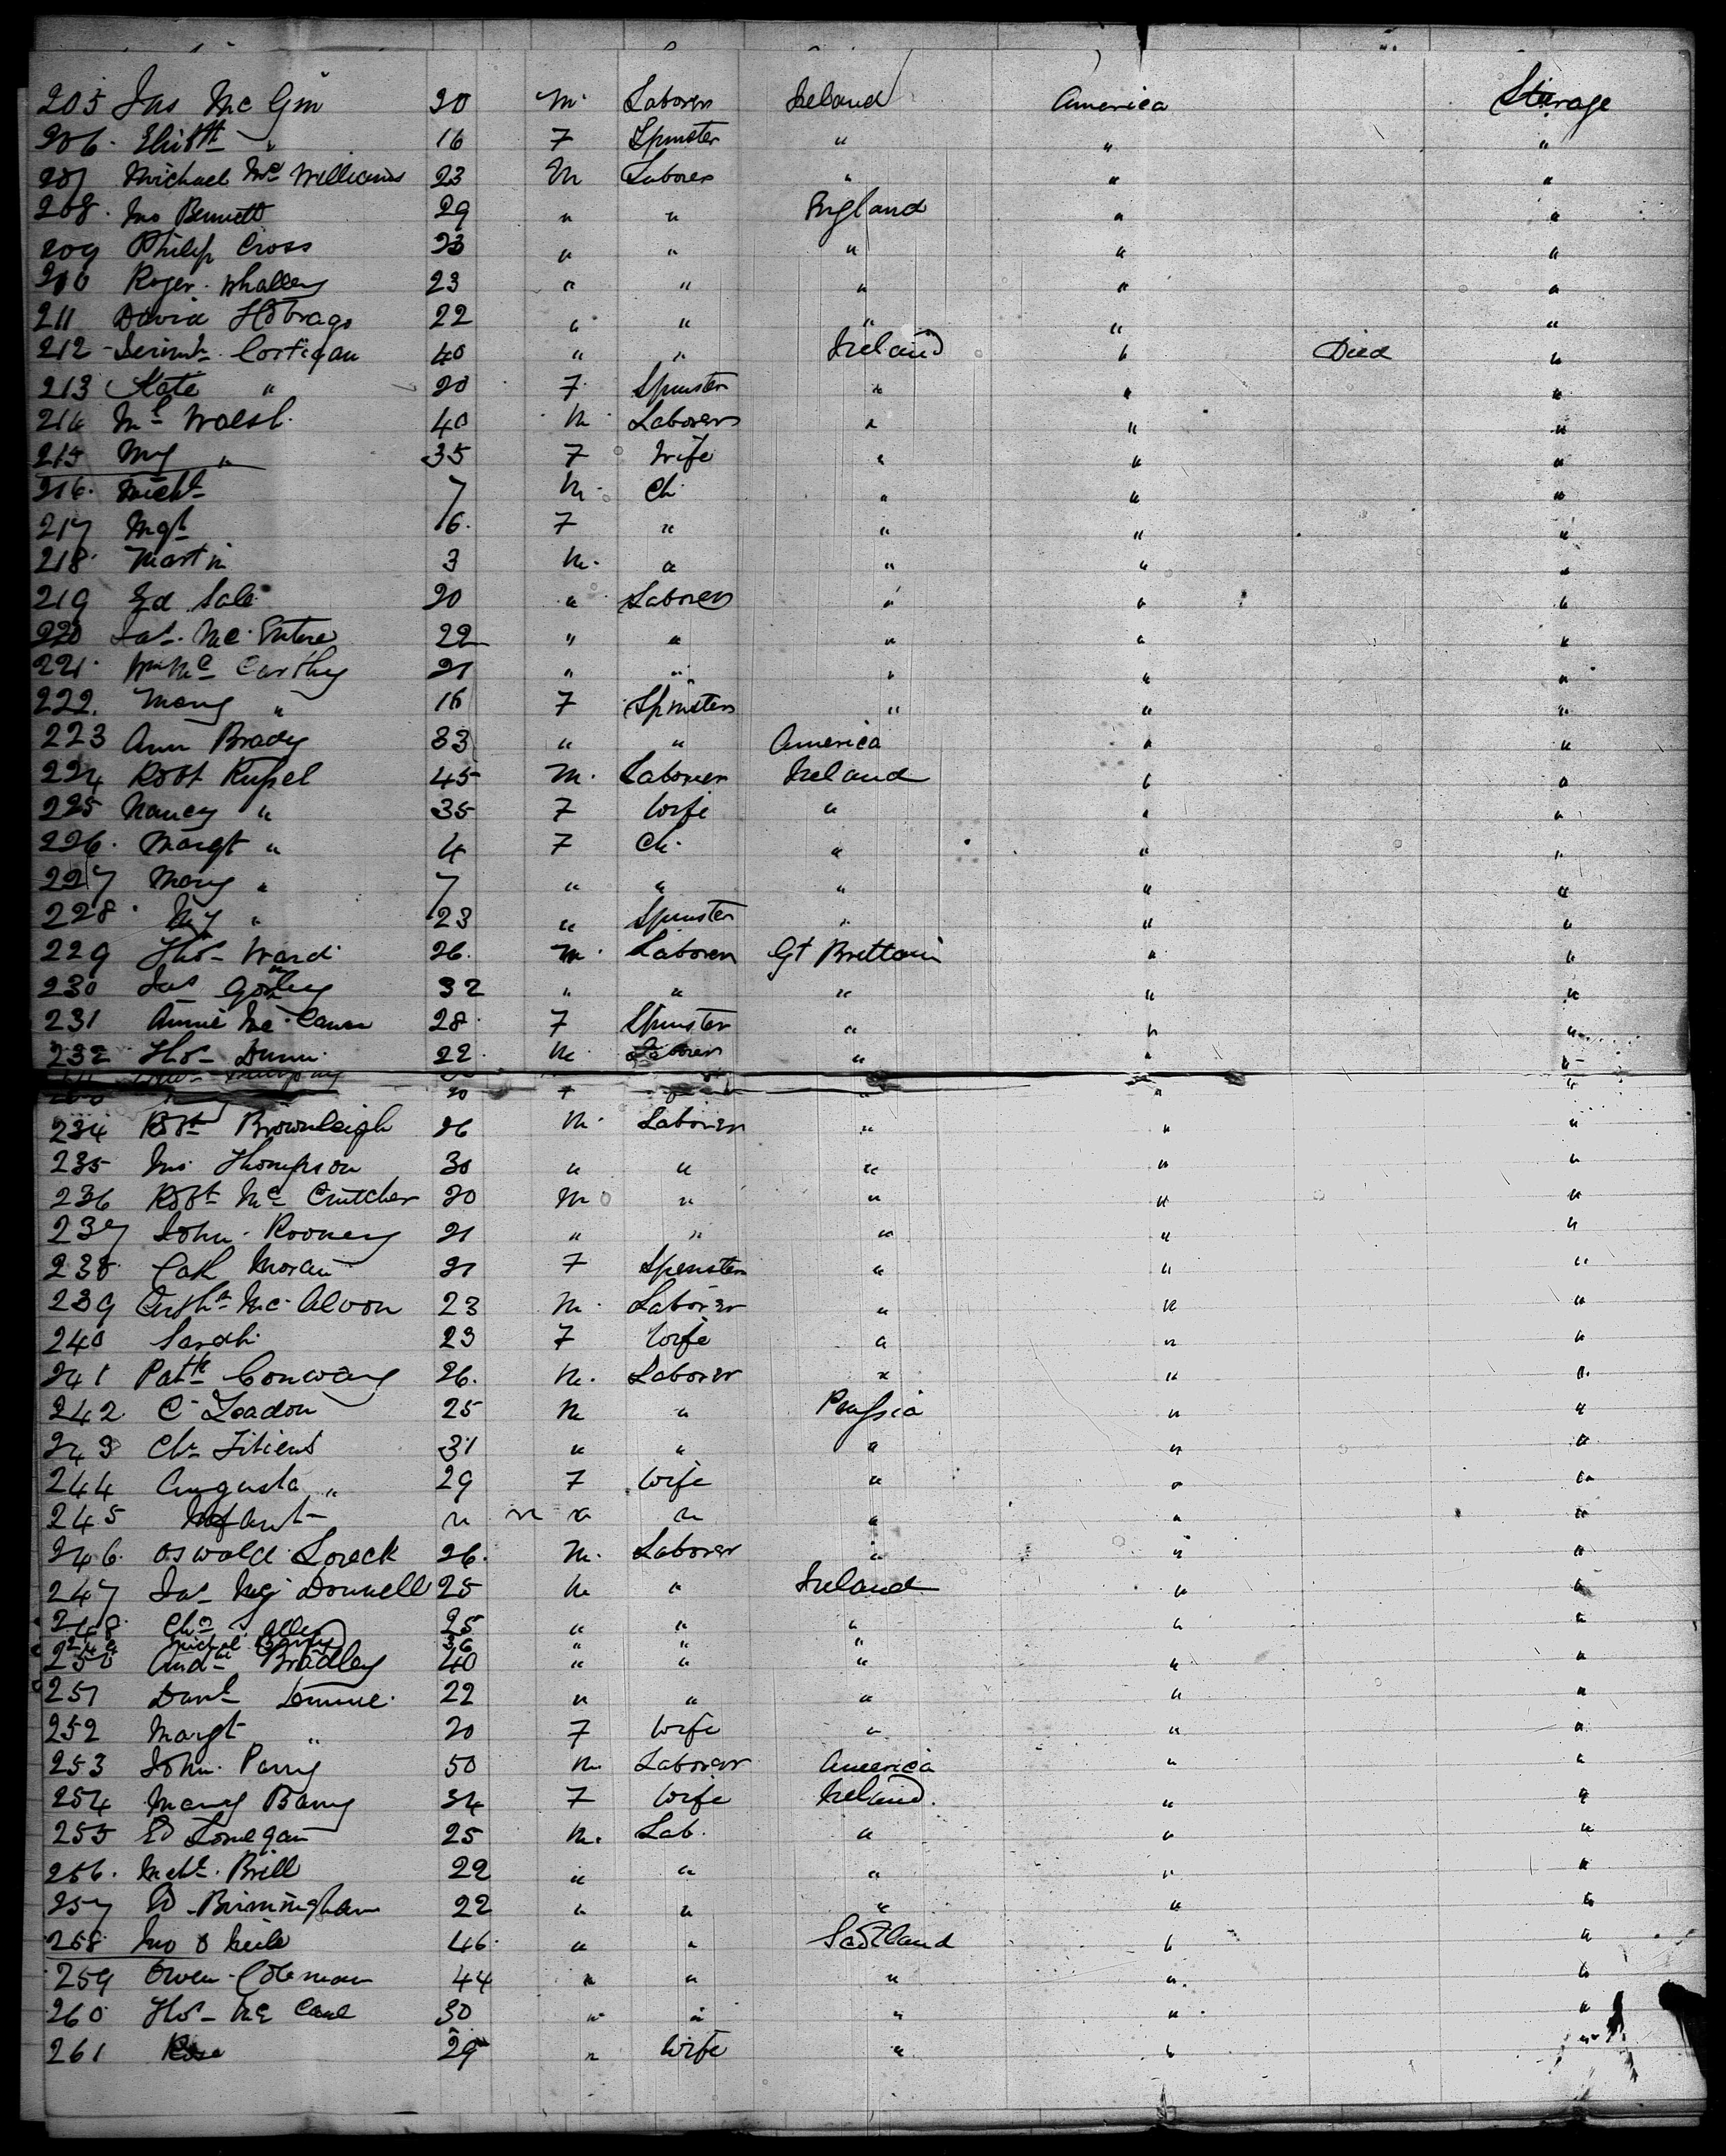 205 Jas McGinn 20 M Laborer Ireland America Sterage
206 Elizth " 16 F Spinster " " "
207 Michael McWilliams 23 M Laborer " " "
208 Jno Bennett 29 " " England " "
209 Philip Cross 23 " " " " "
210 Roger Whalley 23 " " " " "
211 David 22 " " " " "
212 Costigan 40 " " Ireland " Died "
213 Kate " 20 F Spinster " " "
214 Ml Walsh 40 M Laborer " " "
215 Mg " 35 F Wife " " "
216 Michl 7 M Ch " " "
217 Mgt 6 F " " " "
218 Martin 3 M " " " "
219 Ed Sale 20 " Laborer " " "
220 Jas McEntire 22 " " " " "
221 Wm McCarthy 21 " " " " "
222 Mary " 16 F Spinster " " "
223 Ann Brady 33 " " America " "
224 Robt Russel 45 M Laborer Ireland " "
225 Nancy " 35 F Wife " " "
226 Margt " 4 F Ch " " "
227 Mary " 7 " " " " "
228 " 23 " Spinster " " "
229 Thos Ward 26 M Laborer Gt Brettain " "
230 Jas 32 " " " " "
231 Annie McCann 28 F Spinster " " "
232 Thos Dunn 22 M Laborer " " "
20 F " " "
234 Robt Brownleigh 26 M Laborer " " "
235 Jno Thompson 30 " " " " "
236 Robt McCrutcher 20 M " " " "
237 John Rooney 21 " " " " "
238 Cath Moran 21 F Spinster " " "
239 McAlvon 23 M Laborer " " "
240 Sarah 23 F Wife " " "
241 Patk Conway 26 M Laborer " " "
242 C Zeadon 25 M " Prussia " "
243 Chs Titiens 31 " " " " "
244 Augusta " 29 F Wife " " "
245 Infant " " " " " " "
246 Oswald Loreck 26 M Laborer " " "
247 Jas McDonnell 25 M " Ireland " "
248 Chs Alles 25 " " " " "
249 Michal 36 " " "
250 Andw Bradley 40 " " " " "
251 Danl 22 " " " " "
252 Margt " 20 F Wife " " "
253 John Parry 50 M Laborer America " "
254 Mary Barry 34 F Wife Ireland " "
255 Ed Lonegan 25 M Lab. " " "
256 Michl Brill 22 " " " " "
257 Ed Birmingham 22 " " " " "
258 Jno O Neile 46 " " Scotland " "
259 Owen Coleman 44 " " " " "
260 Thos McCane 30 " " " " "
261 Rose 29 " Wife " " "